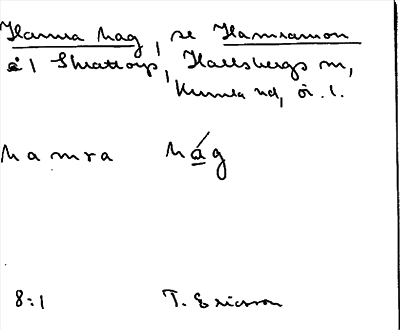 Hamra hag, se Hamramon
i Skrattorp, Hallsbergs sn,
Kumla hd, ör. l.
hamra hág
8:1 T. Ericsson